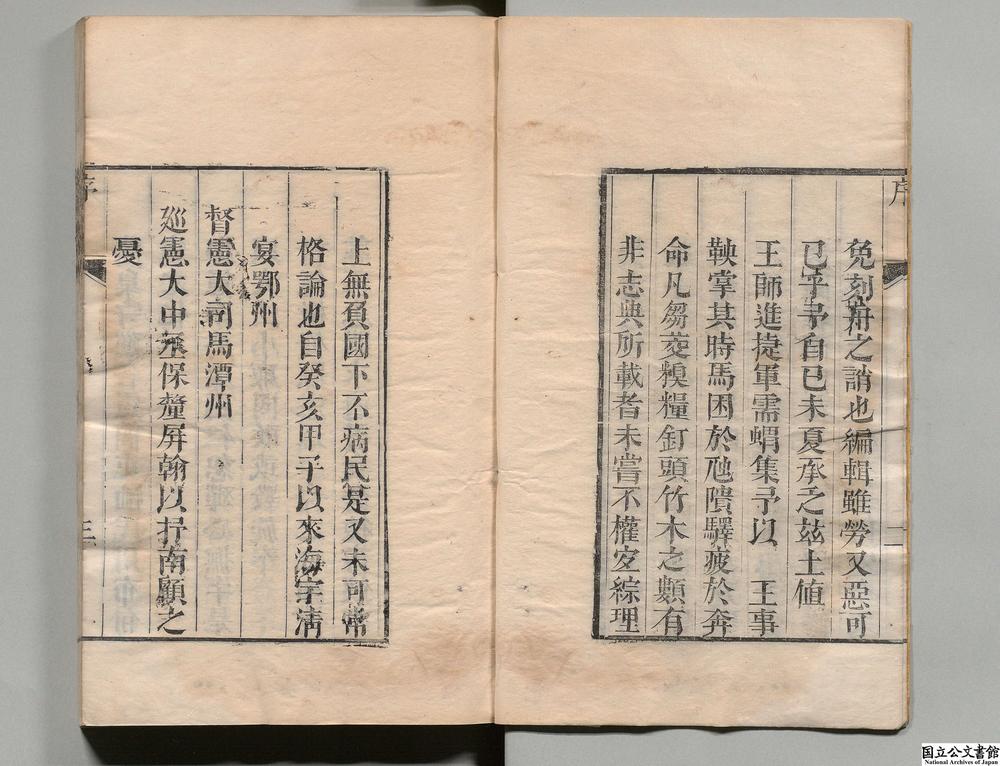 序
免刻舟之誚也編輯雖勞又惡可
已乎予自已未夏承乏兹土值
王師進捷軍需蝟集予以 王事
鞅掌其時馬困於虺隤驛疲於奔
命凡芻茭糗糧釘頭竹木之類有
非志典所載者未嘗不權宜綜理
二
上無負國下不病民是又未可常
格論也自癸亥甲子以來海宇清
宴鄂州
督憲大司馬潭州
廵憲大中丞保釐屏翰以抒南顧之
憂
序
三
国立公文書館
National Archives of Japan